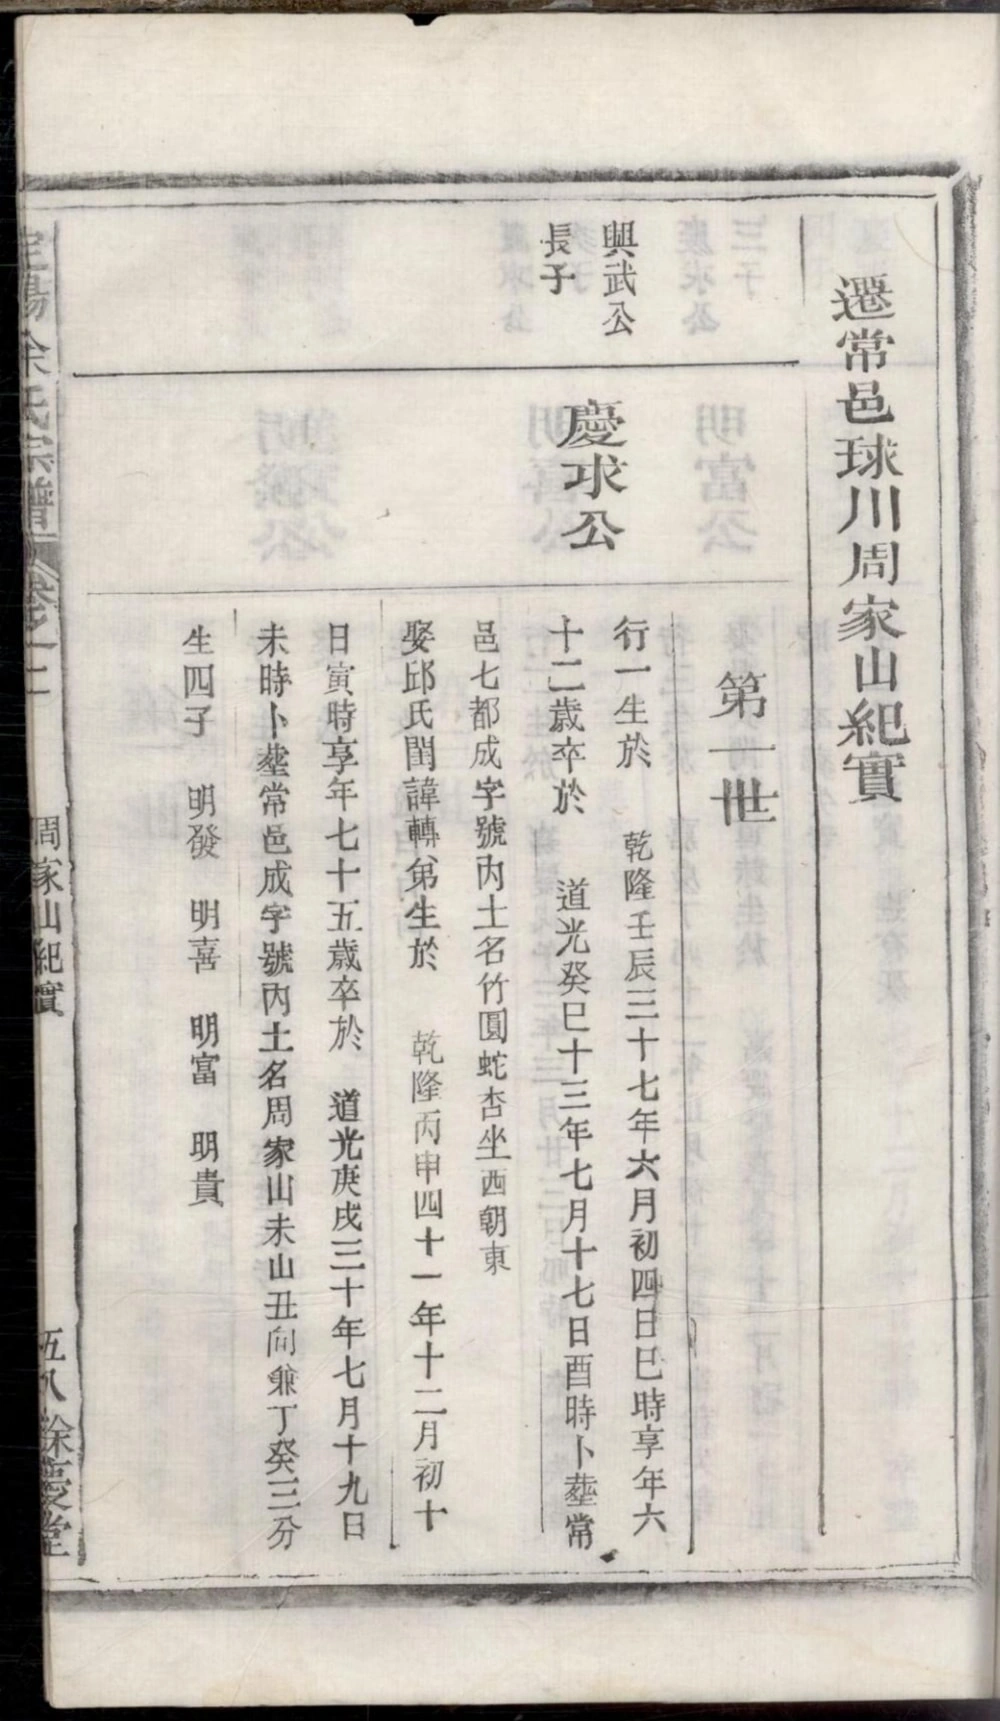 遷常邑球川周家山紀實
第一世
與武公
長子
慶求公
行一生於 乾隆壬辰三十七年六月初四日巳時享年六
十二歲卒於 道光癸巳十三年七月十七日酉時卜塟常
邑七都成字號內土名竹圓蛇杏坐西朝東
娶邱氏閨諱轉弟生於 乾隆丙申四十一年十二月初十
日寅時享年七十五歲卒於 道光庚戌三十年七月十九日
未時卜塟常邑成字號內土名周家山未山丑向兼丁癸三分
生四子 明發 明喜 明富 明貴
定陽余氏宗譜 卷十二 周家山紀實 五八 餘慶堂